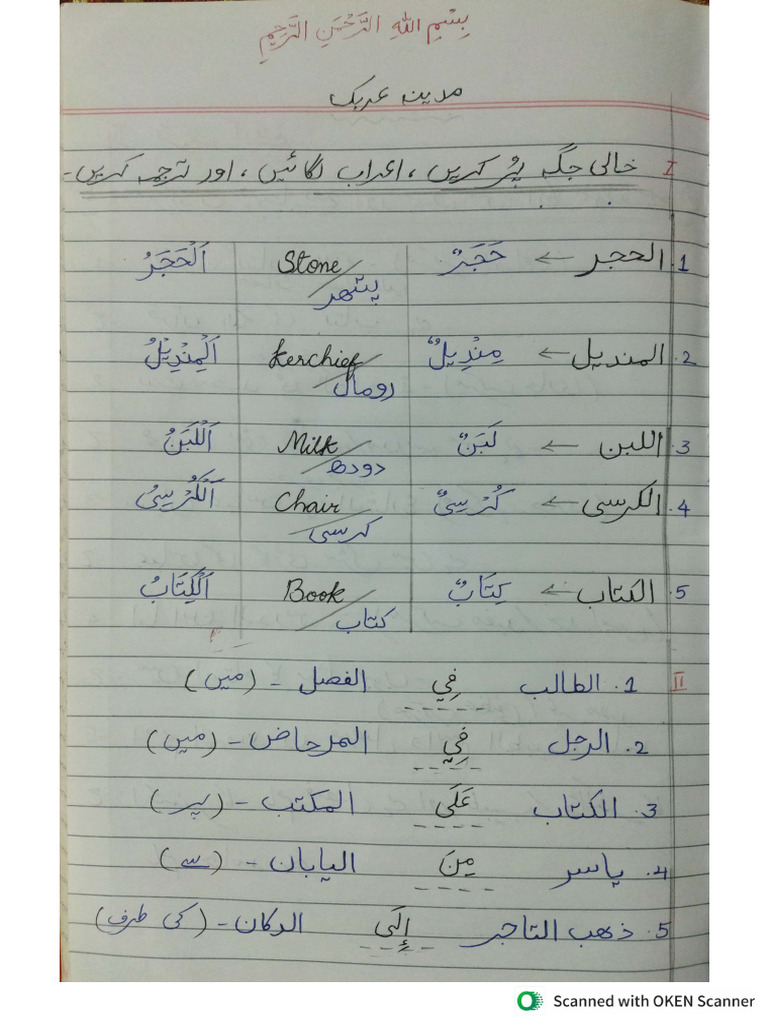 بِسْمِ اللهِ الرَّحْمٰنِ الرَّحِيْمِ
مدینہ عربک
I خالی جگہ پُر کریں ، اعراب لگائیں ، اور ترجمہ کریں۔
1. الحجر ← حَجَرٌ Stone/پتھر اَلْحَجَرُ
2. المنديل ← مِنْدِيلٌ Kerchief/رومال اَلْمِنْدِيْلُ
3. اللبن ← لَبَنٌ Milk/دودھ اَللَّبَنُ
4. الكرسى ← كُرْسِىٌّ Chair/کرسی اَلْكُرْسِىُّ
5. الكتاب ← كِتَابٌ Book/کتاب اَلْكِتَابُ
II 1. الطالب فِي الفصل - (میں)
2. الرجل فِي المرحاض - (میں)
3. الكتاب عَلَى المكتب - (پر)
4. ياسر مِنَ اليابان - (سے)
5. ذهب التاجر إِلَى الدكان - (کی طرف)
Scanned with OKEN Scanner